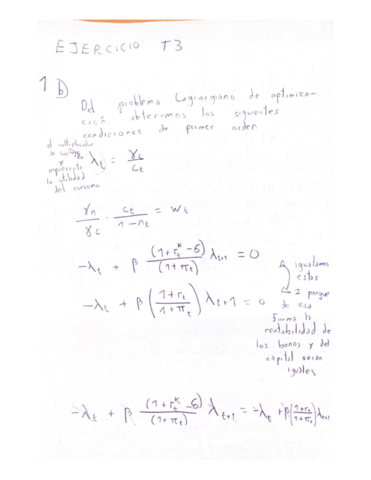 EJERCICIO T3
1 b)
Del problema Lagrangiano de optimiza-
ción obtenemos los siguientes
condiciones de primer orden
el multiplicador
y
representa
la utilidad
del consumo
λt = γc/ct
γn/γc · ct/(1-nt) = wt
-λt + β (1+rt^k-δ)/(1+πt) λt+1 = 0
igualamos
estas
-λt + β ((1+rt)/(1+πt)) λt+1 = 0
2 porque
de esa
forma la
rentabilidad de
los bonos y del
capital serán
iguales
-λt + β (1+rt^k-δ)/(1+πt) λt+1 = -λt + β((1+rt)/(1+πt)) λt+1